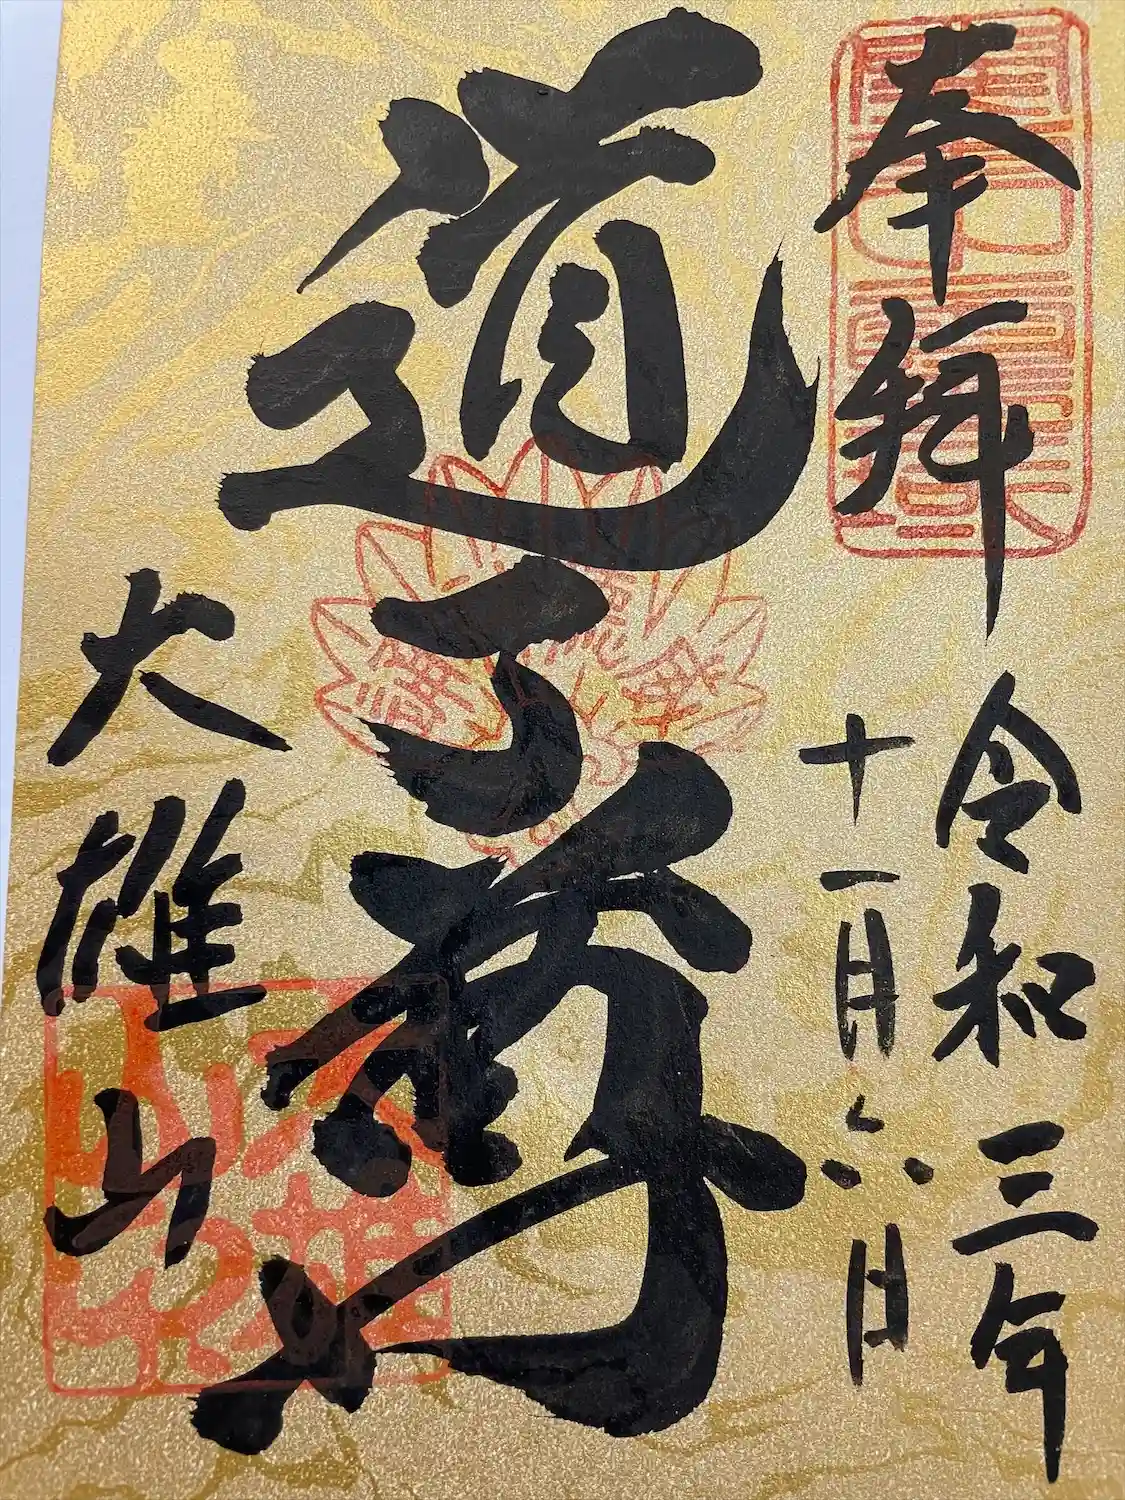 奉拝
令和三年
十一月六日
道了尊
大雄山